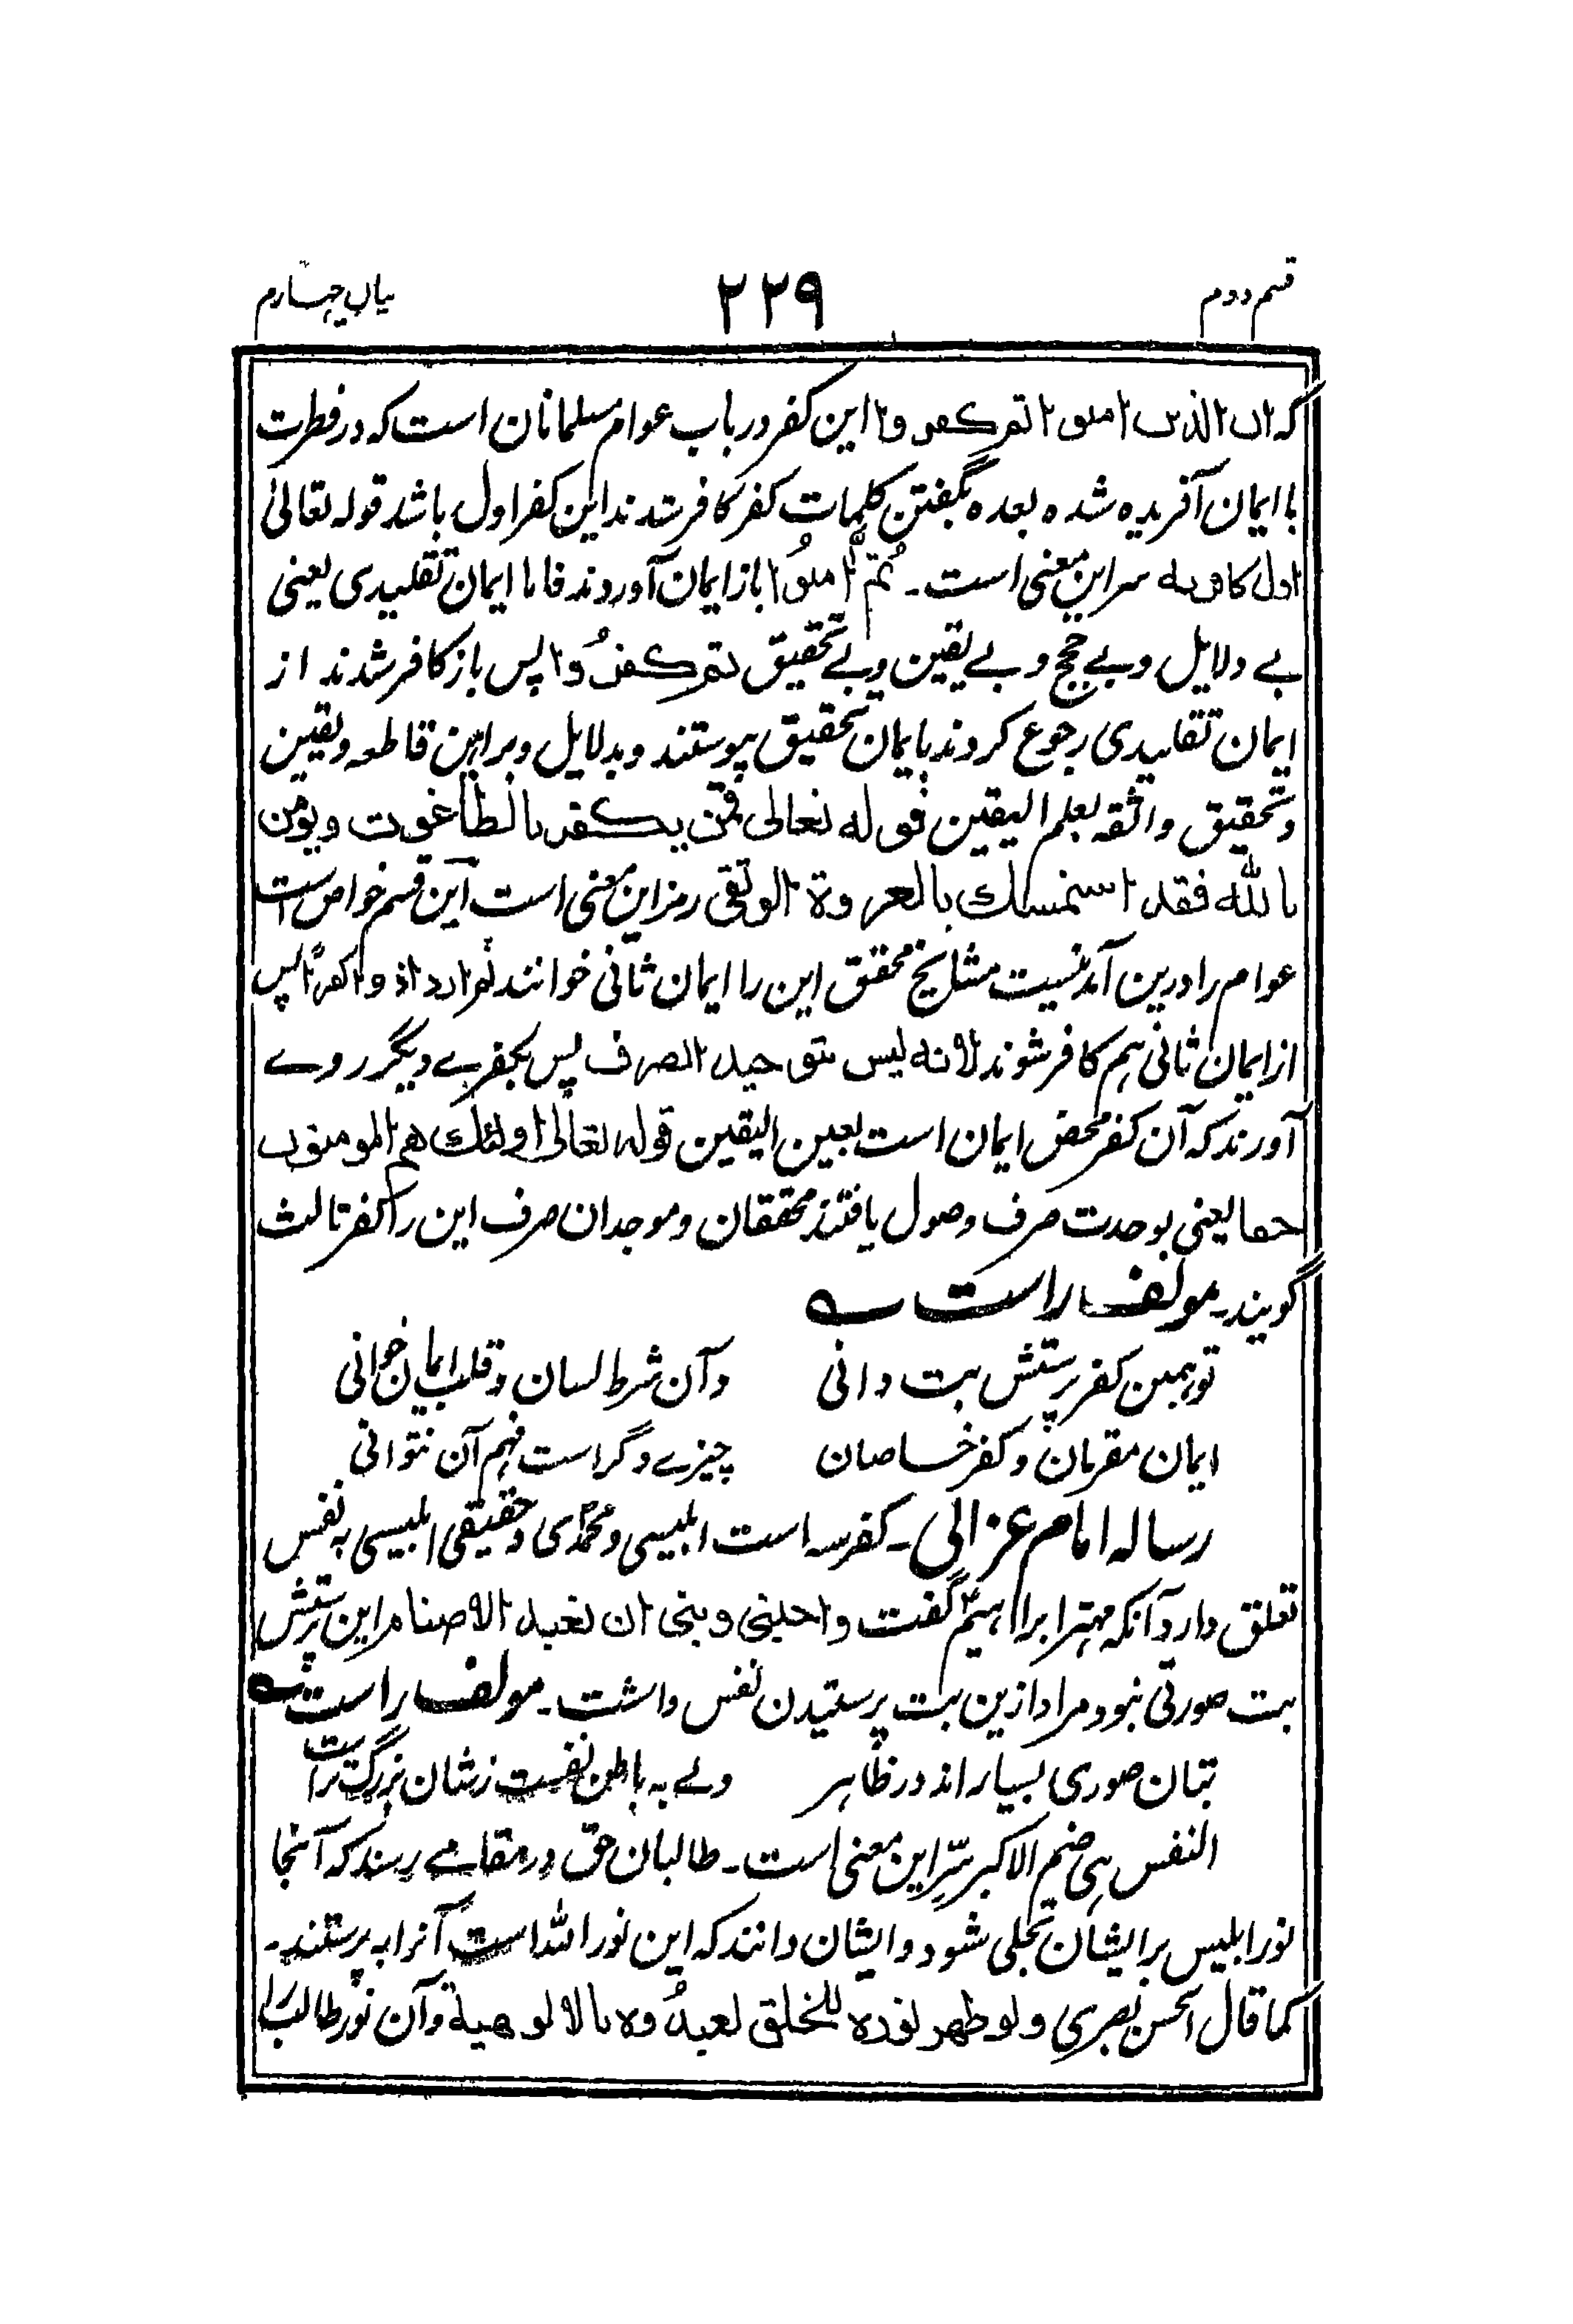 قسم دوم
۲۲۹
بیان چہارم
که ان الذین امنوا ثم کفروا این کفر در باب عوام مسلمانان است که در فطرت
با ایمان آفریده شده بعده بگفتن کلمات کفر کافر شدند این کفر اول باشد قوله تعالیٰ
اول کافر به سر این معنی است ۔ ثُمَّ امنُوا باز ایمان آوردند فاما ایمان تقلیدی یعنی
بے دلایل و بے حجج و بے یقین و بے تحقیق ثم کفرُوا پس باز کافر شدند از
ایمان تقلیدی رجوع کردند بایمان تحقیق پیوستند و بدلایل و براہین قاطعه و یقین
و تحقیق واثقه بعلم الیقین قوله تعالی فمن یکفر بالطاغوت ویؤمن
بالله فقد استمسك بالعروة الوثقی رمز این معنی است این قسم خواص است
عوام را درین آمد نیست مشایخ محقق این را ایمان ثانی خوانند ثم ازدادوا کفرًا پس
از ایمان ثانی ہم کافر شوند لانه لیس بتوحید الصرف پس بکفرے دیگر روے
آورند که آن کفر محض ایمان است بعین الیقین قوله تعالیٰ اولئك هم المومنون
حقا یعنی بوحدت صرف وصول یافتند محققان و موحدان صرف این را کفر ثالث
گویند ۔ مولف راست ؎
تو ہمین کفر پرستش بت دانی وآن شرط لسان و قلب ایمان خوانی
ایمان مقربان و کفر خاصان چیزے دگر است فہم آن نتوانی
رساله امام غزالی ۔ کفر سه است ابلیسی و محمدی و حقیقی ابلیسی به نفس
تعلق دارد آنکه مہتر ابراہیم گفت واجنبنی وبنی ان نعبد الاصنام این پرستش
بت صورتی نبود مراد ازین بت پرستیدن نفس داشت ۔ مولف راست ؎
بتان صوری بسیار اند در ظاہر ولے به باطن نفست زشان بزرگ تر است
النفس ہی صنم الاکبر سرّ این معنی است ۔ طالبان حق در مقامے رسند که آنجا
نور ابلیس بر ایشان تجلی شود و ایشان دانند که این نور الله است آنرا به پرستند ۔
کما قال الحسن بصری ولو ظهر نوره للخلق لعبدُوه بالالوهیة و آن نور طالب را